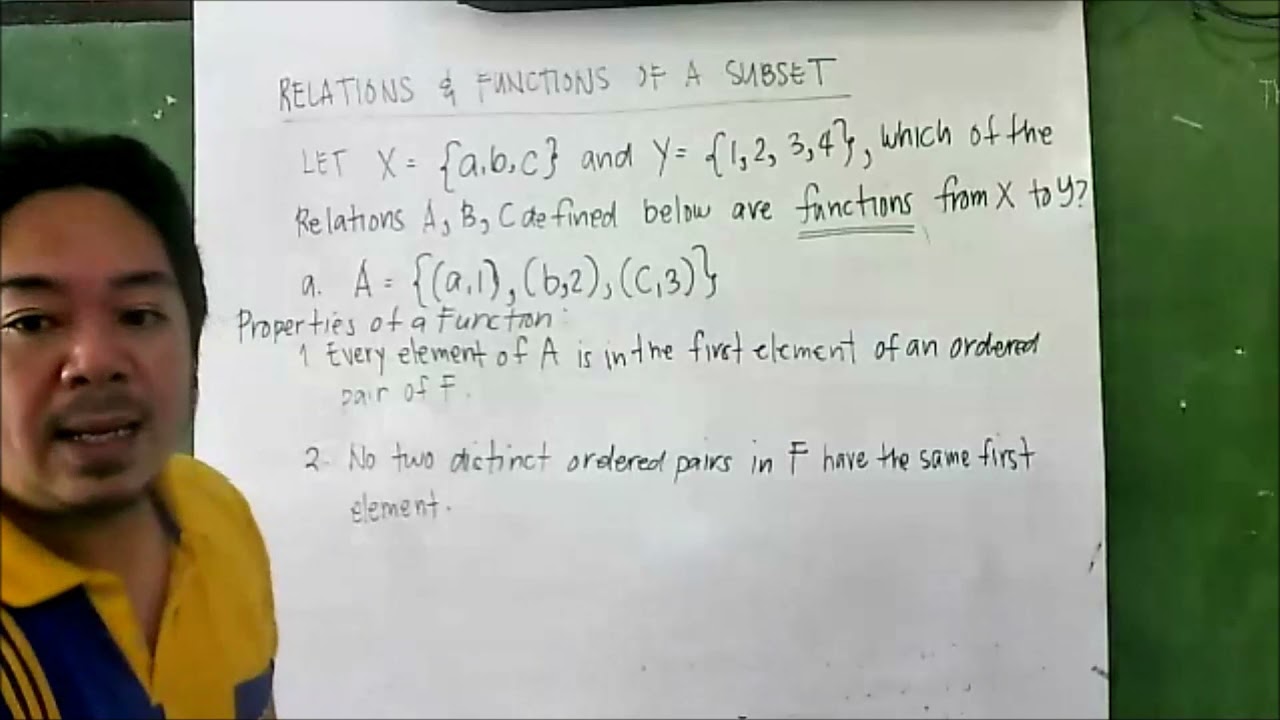 RELATIONS & FUNCTIONS OF A SUBSET
LET X = {a,b,c} and Y= {1,2, 3,4}, which of the
Relations A, B, C defined below are functions from X to Y?
a. A = {(a,1), (b,2), (c,3)}
Properties of a Function:
1 Every element of A is in the first element of an ordered
pair of F.
2. No two distinct ordered pairs in F have the same first
element.